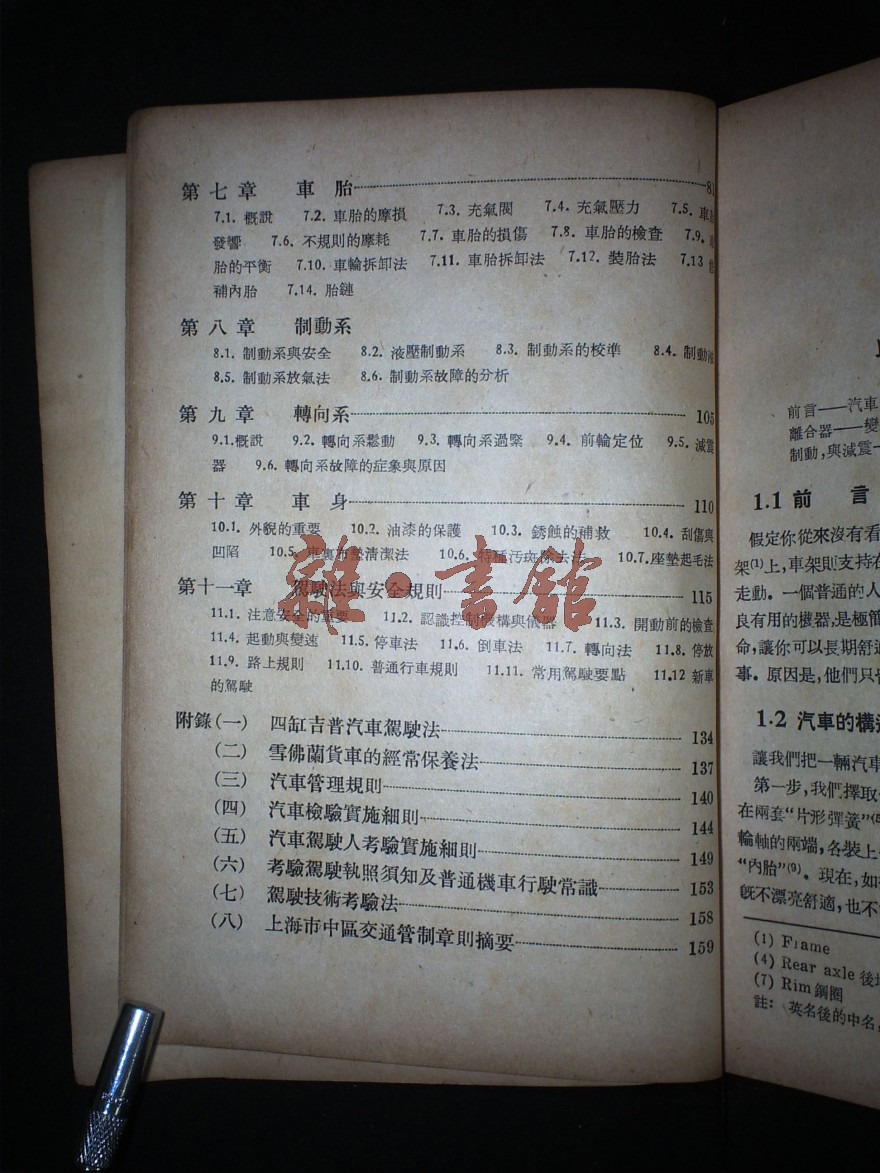 第七章 車胎 81
7.1. 概說 7.2. 車胎的摩損 7.3. 充氣閥 7.4. 充氣壓力 7.5. 車
發響 7.6. 不規則的摩耗 7.7. 車胎的損傷 7.8. 車胎的檢查 7.9.
胎的平衡 7.10. 車輪拆卸法 7.11. 車胎拆卸法 7.12. 裝胎法 7.13
補內胎 7.14. 胎鏈
第八章 制動系
8.1. 制動系與安全 8.2. 液壓制動系 8.3. 制動系的校準 8.4. 制動液
8.5. 制動系放氣法 8.6. 制動系故障的分析
第九章 轉向系 105
9.1.概說 9.2. 轉向系鬆動 9.3. 轉向系過緊 9.4. 前輪定位 9.5. 減震
器 9.6. 轉向系故障的症象與原因
第十章 車身 110
10.1. 外貌的重要 10.2. 油漆的保護 10.3. 銹蝕的補救 10.4. 刮傷與
凹陷 10.5. 車裏布墊清潔法 10.6. 特種汚斑除去法 10.7.座墊起毛法
第十一章 駕駛法與安全規則 115
11.1. 注意安全的重要 11.2. 認識控制機構與儀器 11.3. 開動前的檢查
11.4. 起動與變速 11.5. 停車法 11.6. 倒車法 11.7. 轉向法 11.8. 停放
11.9. 路上規則 11.10. 普通行車規則 11.11. 常用駕駛要點 11.12 新車
的駕駛
附錄(一) 四缸吉普汽車駕駛法 134
(二) 雪佛蘭貨車的經常保養法 137
(三) 汽車管理規則 140
(四) 汽車檢驗實施細則 144
(五) 汽車駕駛人考驗實施細則 149
(六) 考驗駕駛執照須知及普通機車行駛常識 153
(七) 駕駛技術考驗法 158
(八) 上海市中區交通管制章則摘要 159
雜·書館
前言——汽車
離合器——變
制動,與減震—
1.1 前言
假定你從來沒有看
架(1)上,車架則支持在
走動。一個普通的人
良有用的機器,是極簡
命,讓你可以長期舒適
事。原因是,他們只
1.2 汽車的構造
讓我們把一輛汽車
第一步,我們擇取
在兩套“片形彈簧”
輪軸的兩端,各裝上
“內胎”(9)。現在,如
既不漂亮舒適,也不
(1) Frame
(4) Rear axle 後
(7) Rim 鋼圈
註: 英名後的中名,